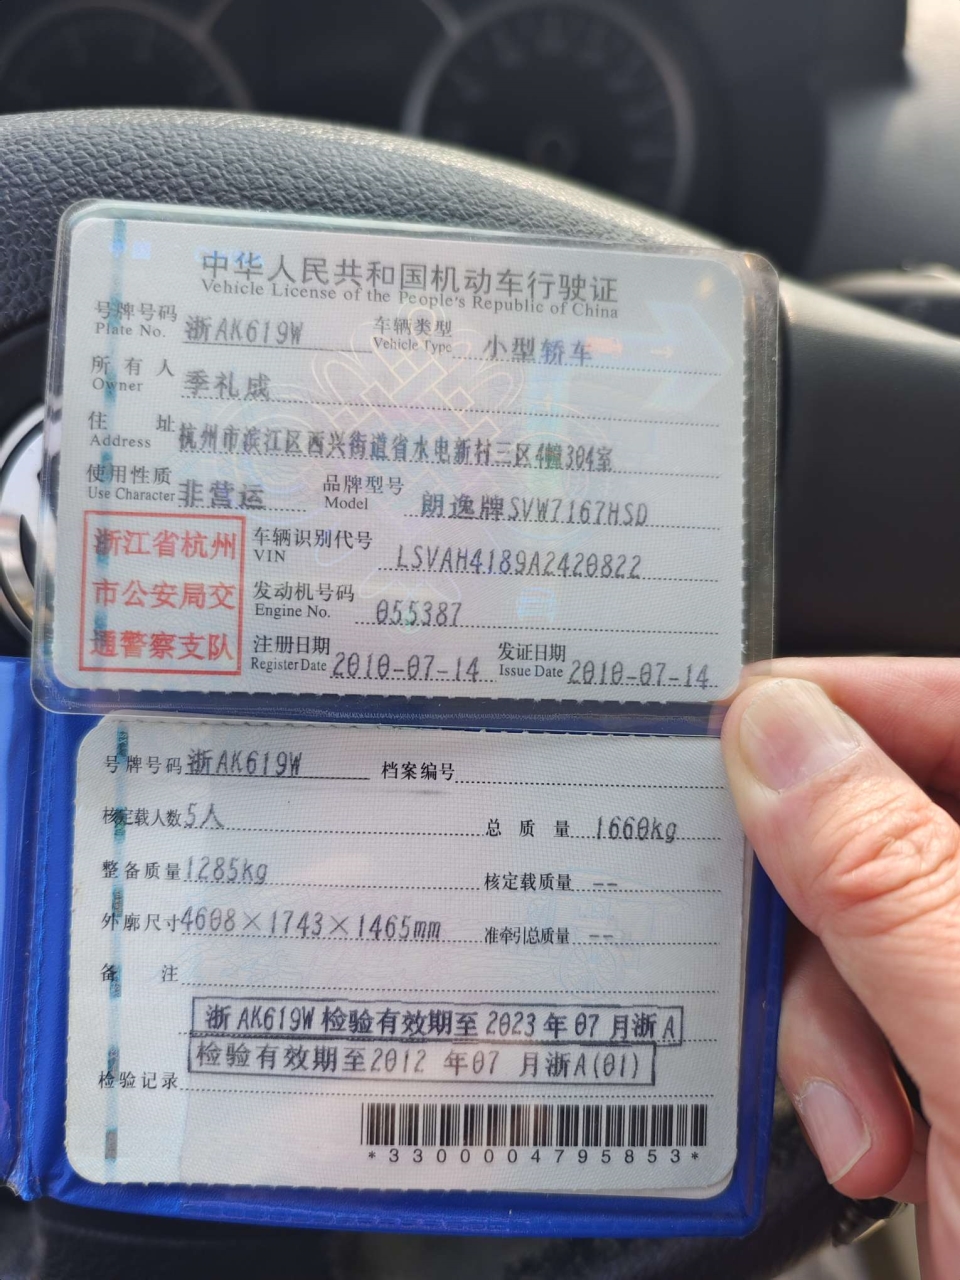 中华人民共和国机动车行驶证
Vehicle License of the People's Republic of China
号牌号码 浙AK619W 车辆类型 小型轿车
Plate No. Vehicle Type
所有人 季礼成
Owner
住址 杭州市滨江区西兴街道省水电新村三区4幢304室
Address
使用性质 非营运 品牌型号 朗逸牌SVW7167HSD
Use Character Model
浙江省杭州
市公安局交
通警察支队
车辆识别代号 LSVAH4189A2420822
VIN
发动机号码 055387
Engine No.
注册日期 2010-07-14 发证日期 2010-07-14
Register Date Issue Date
号牌号码 浙AK619W 档案编号
核定载人数 5人 总质量 1660kg
整备质量 1285kg 核定载质量 --
外廓尺寸 4608×1743×1465mm 准牵引总质量 --
备注
浙AK619W检验有效期至2023年07月浙A
检验有效期至2012 年07 月浙A(01)
检验记录
*3300004795853*